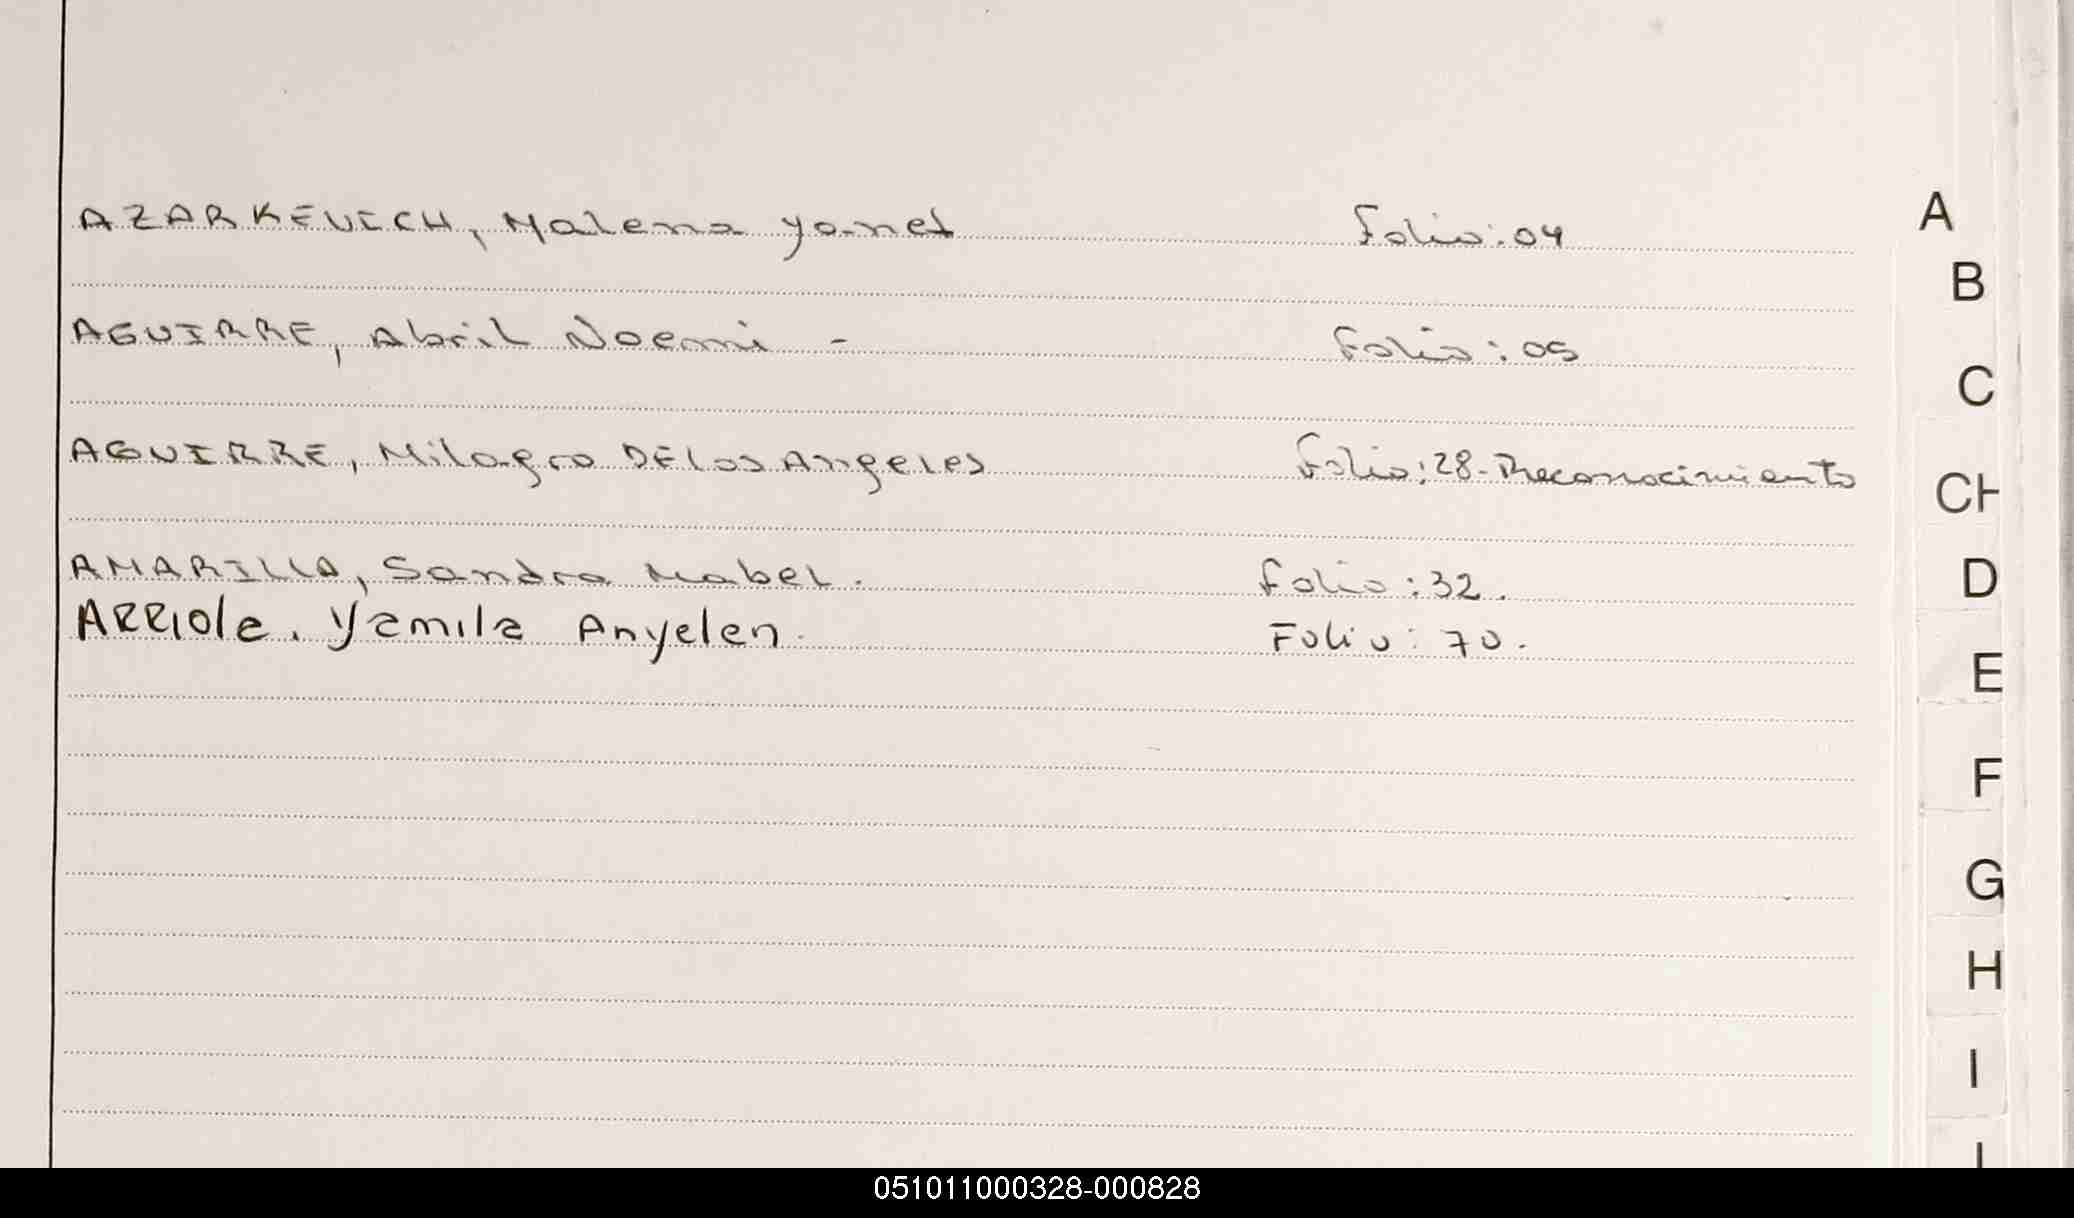 AZARKEVICH, Malena Yanet Folio: 04
AGUIRRE, Abril Noemi - Folio: 05
AGUIRRE, Milagro DE los Angeles Folio: 28 - Reconocimiento
AMARILLA, Sandra Mabel. Folio: 32.
ARRIOLA. Yamila Anyelen. Folio: 70.
A
B
C
CH
D
E
F
G
H
I
051011000328-000828